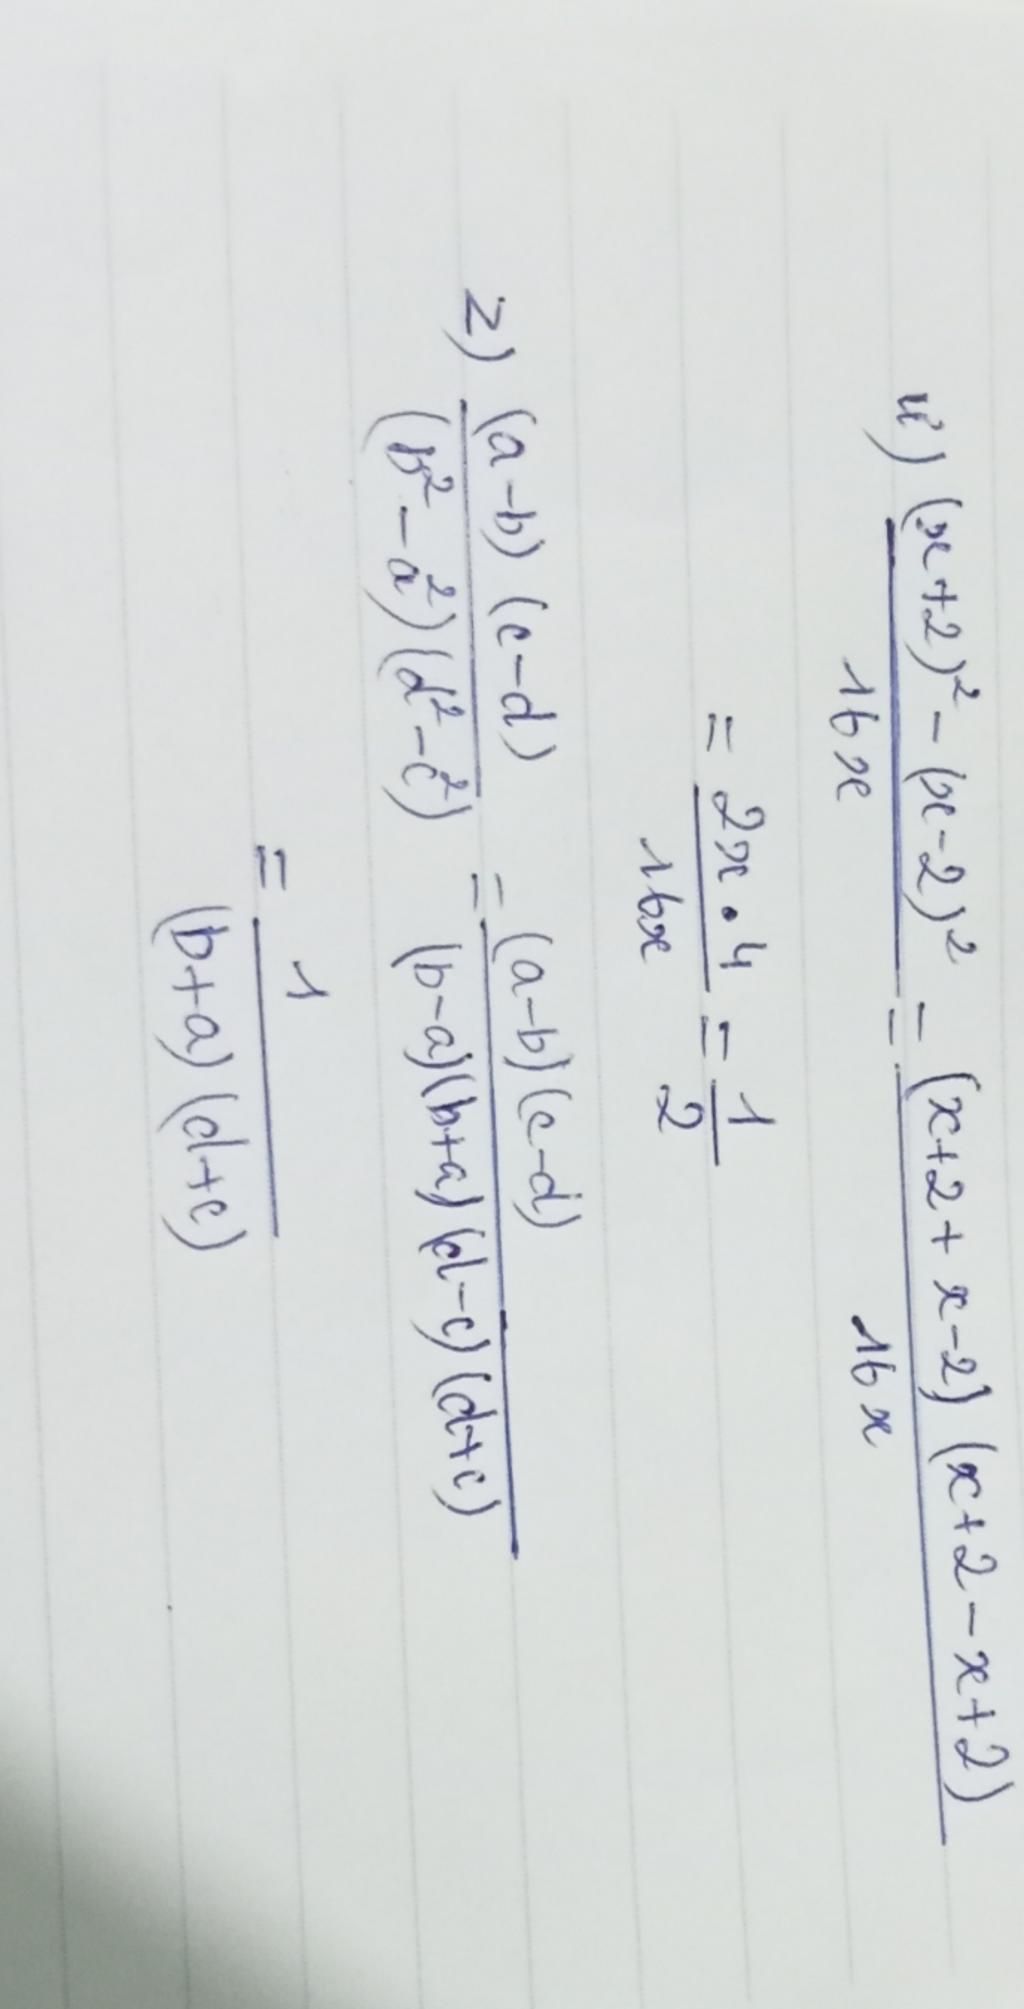 u) (x+2)² - (x-2)² / 16x = (x+2+x-2) (x+2-x+2) / 16x
= 2x·4 / 16x = 1/2
z) (a-b) (c-d) / (b²-a²) (d²-c²) = (a-b) (c-d) / (b-a) (b+a) (d-c) (d+c)
= 1 / (b+a) (d+c)